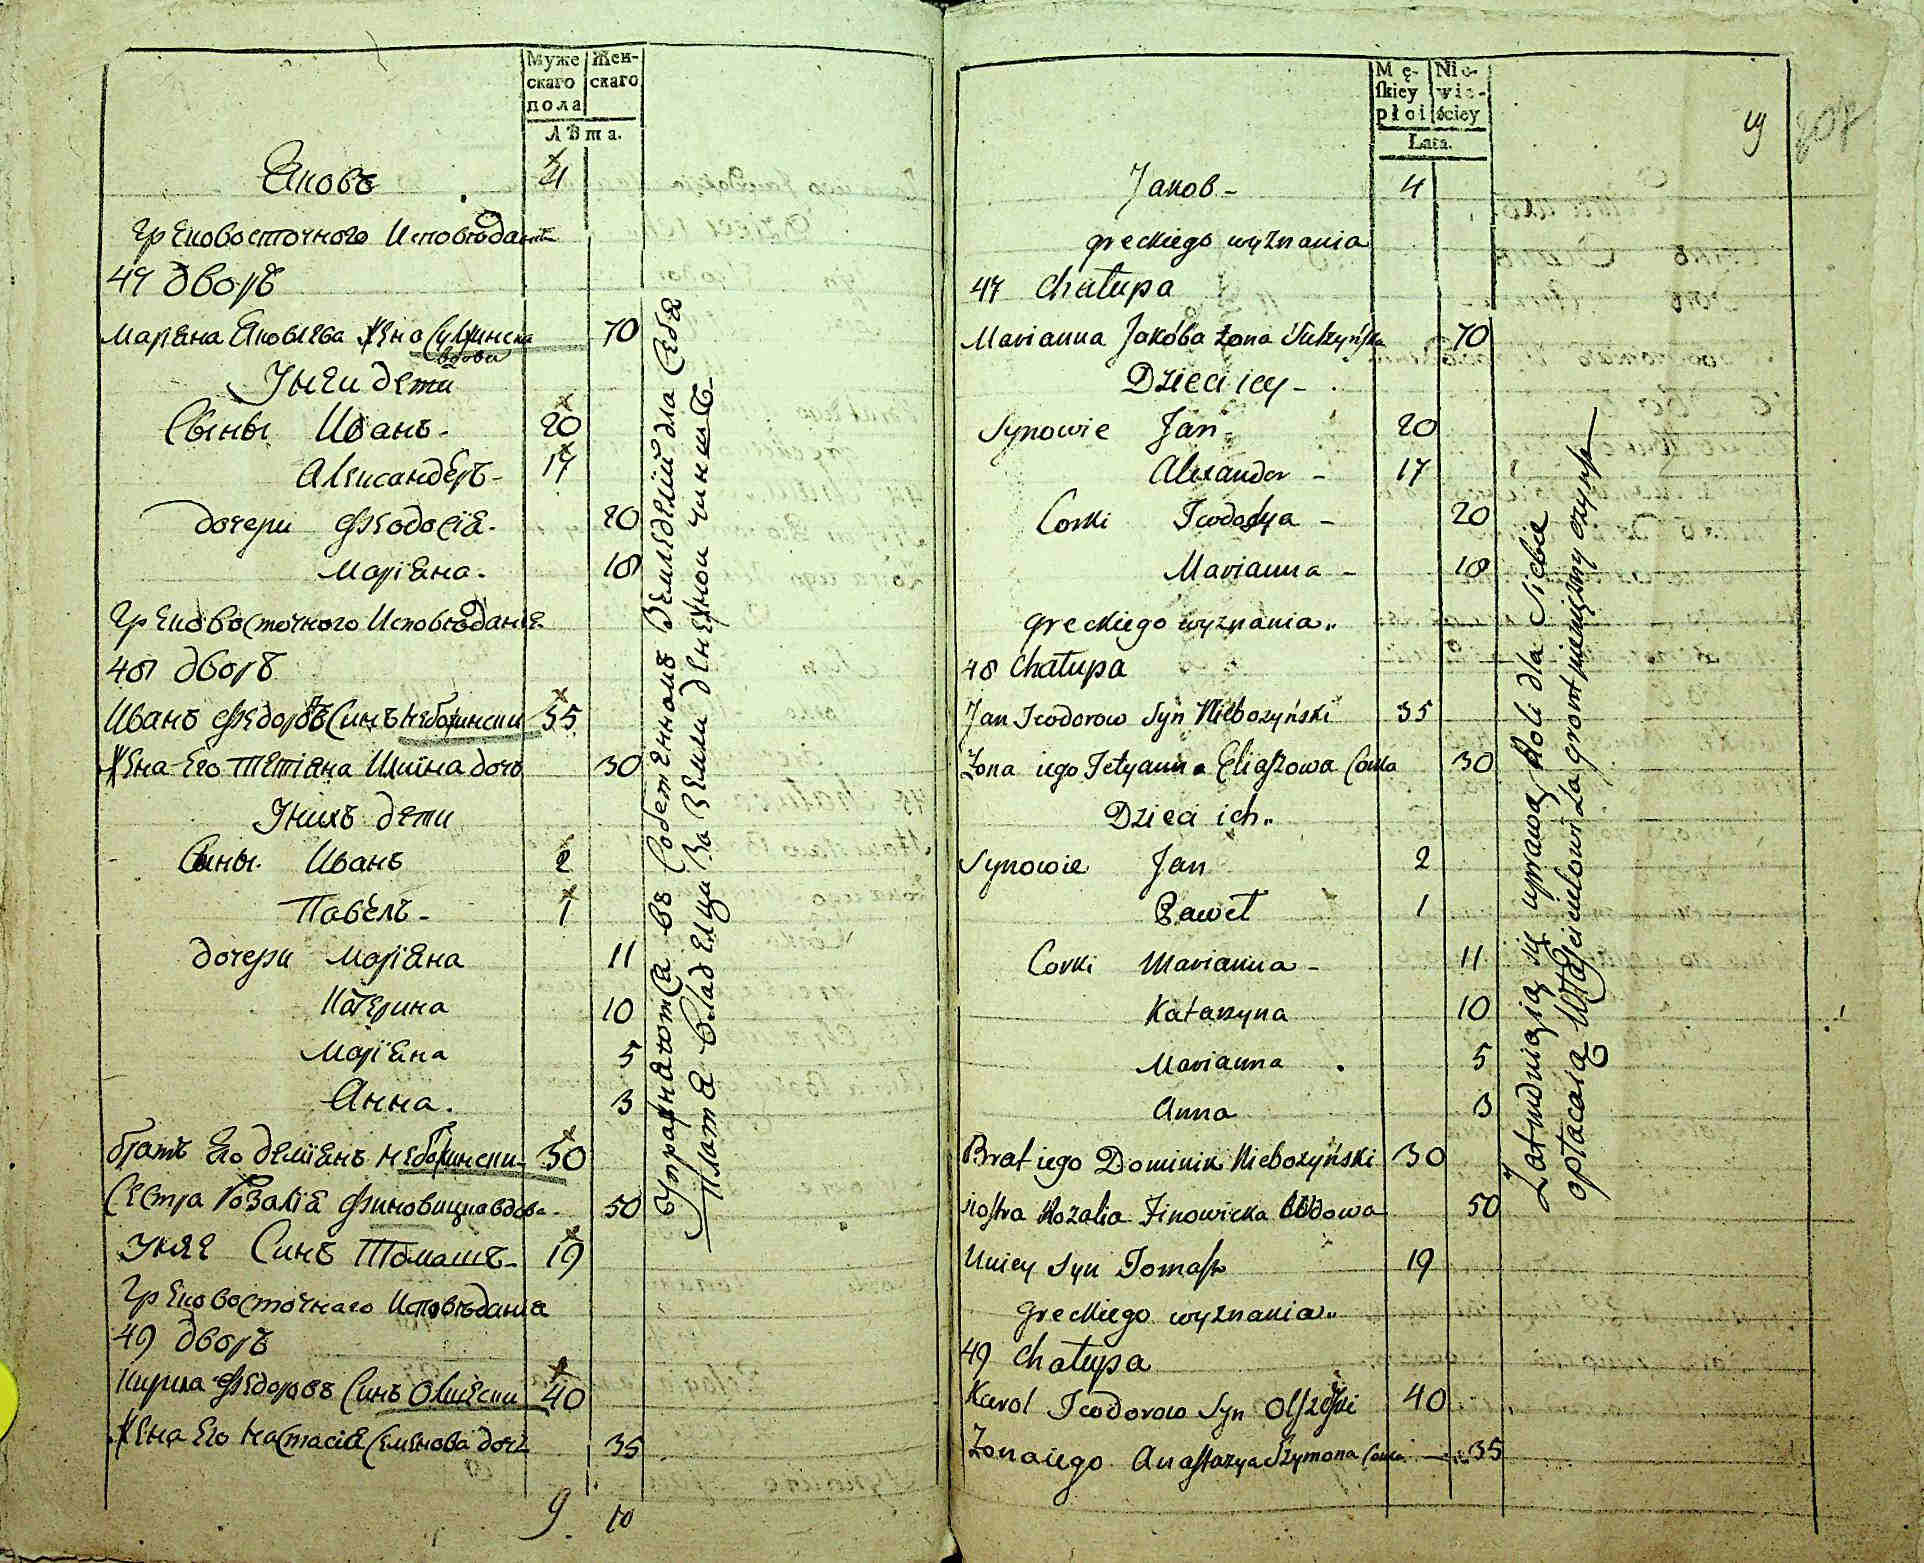 Муже
скаго
пола
Жен-
скаго
Лѣта.
Яковъ 4
Грековосточного Исповѣдания
47 дворъ
Мариена Яковлева Жена Сулжинска 70
вдова
У неи дети
Сыны Иванъ - 20
Александеръ - 17
дочери Феодосiя - 20
Марiяна - 18
Грековосточного Исповѣданiя
48 дворъ
Иванъ Федоровъ Синъ Небожински 35
Жена Его Тетiяна Илiина дочь 30
У нихъ дети
Сыны Иванъ 2
Павелъ - 1
дочери Марiяна 11
Катерина 10
Марiяна 5
Анна. 3
братъ Его Демiянъ Небожински 30
Сестра Розалiя Финовицка вдова 50
У нея Синъ Томашъ - 19
Грековосточнаго Исповѣданiя
49 дворъ
Кирила Федоровъ Синъ Олшески 40
Жена Его Настасiя Семенова дочь 35
9 10
Упражнаются въ Собственномъ Земледелiи для Себя
Платя Владелцу За Землю денежнои чиншъ
Mę-
skiey
płci
Nie-
wie-
ściey
Lata.
19
208
Jakob - 4
greckiego wyznania
47 Chałupa
Marianna Jakóba żona Sulzyńska 70
Dzieci iey -
Synowie Jan - 20
Alexander - 17
Corki Teodozya - 20
Marianna - 18
greckiego wyznania
48 Chałupa
Jan Teodorow Syn Niebozyński 35
Zona iego Tetyanna Eliaszowa Corka 30
Dzieci ich
Synowie Jan 2
Paweł 1
Corki Marianna - 11
Katarzyna 10
Marianna 5
Anna 3
Brat iego Dominik Niebozyński 30
siostra Rozalia Finowicka Wdowa 50
U niey Syn Tomasz 19
Greckiego wyznania
49 Chałupa
Karol Teodorow Syn Olszeski 40
Zona iego Anastazya Szymona Corka 35
Zatrudniaią się uprawą Roli dla Siebie
opłacaią Właścicielowi za gront pieniężny czynsz